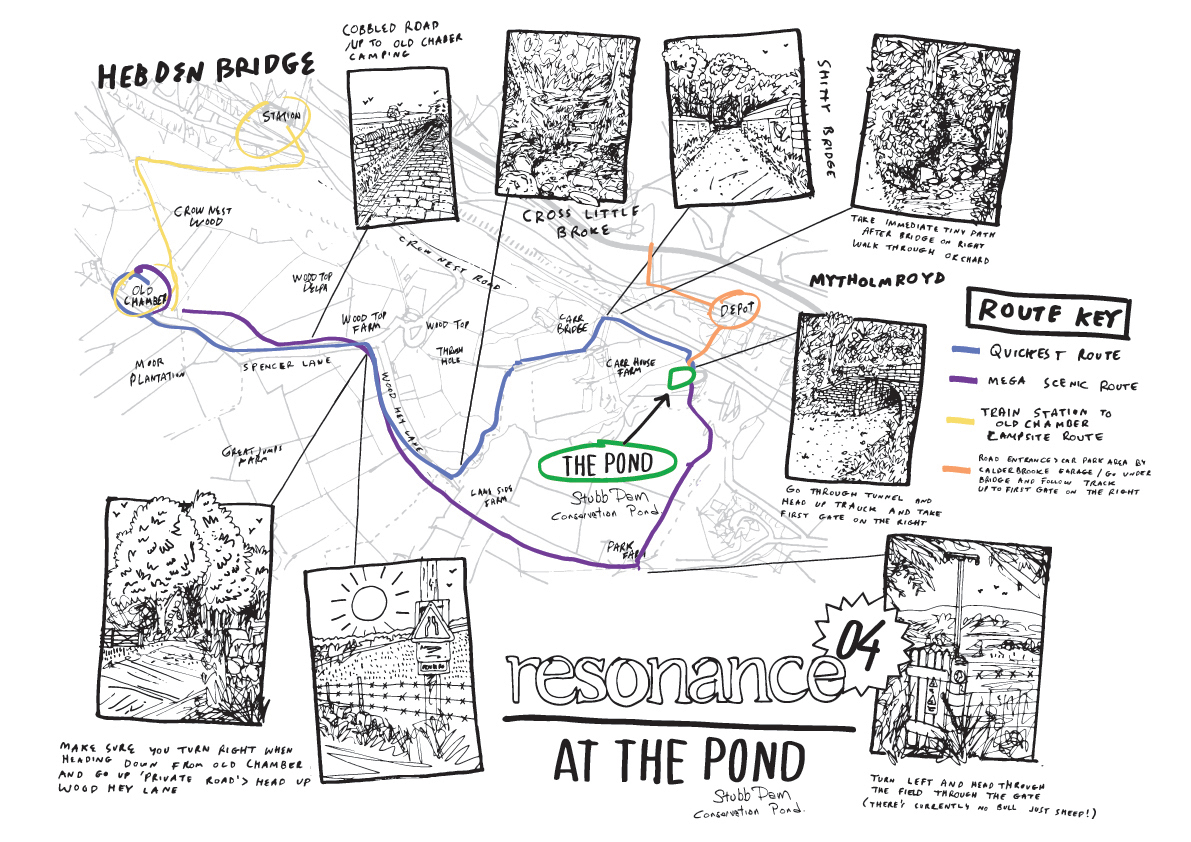 HEBDEN BRIDGE
COBBLED ROAD
/UP TO OLD CHABER
CAMPING
STATION
CROW NEST
WOOD
CROSS LITTLE
BROKE
SHITHY BRIDGE
TAKE IMMEDIATE TINY PATH
AFTER BRIDGE ON RIGHT
WALK THROUGH ORCHARD
CROW NEST ROAD
WOOD TOP
DELPH
OLD
CHAMBER
WOOD TOP
FARM
WOOD TOP
THRUSH
HOLE
CARR
BRIDGE
DEPOT
MYTHOLMROYD
MOOR
PLANTATION
SPENCER LANE
WOOD HEY LANE
CARR HOUSE
FARM
ROUTE KEY
QUICKEST ROUTE
MEGA SCENIC ROUTE
TRAIN STATION TO
OLD CHAMBER
CAMPSITE ROUTE
ROAD ENTRANCE > CAR PARK AREA BY
CALDERBROOKE GARAGE / GO UNDER
BRIDGE AND FOLLOW TRACK
UP TO FIRST GATE ON THE RIGHT
GREAT JUMPS
FARM
THE POND
Stubb Dam
Conservation Pond.
LANE SIDE
FARM
PARK
FARM
GO THROUGH TUNNEL AND
HEAD UP TRAUCK AND TAKE
FIRST GATE ON THE RIGHT
resonance
04
AT THE POND
Stubb Dam
Conservation Pond.
MAKE SURE YOU TURN RIGHT WHEN
HEADING DOWN FROM OLD CHAMBER
AND GO UP 'PRIVATE ROAD'S HEAD UP
WOOD HEY LANE
TURN LEFT AND HEAD THROUGH
THE FIELD THROUGH THE GATE
(THERE'S CURRENTLY NO BULL JUST SHEEP!)